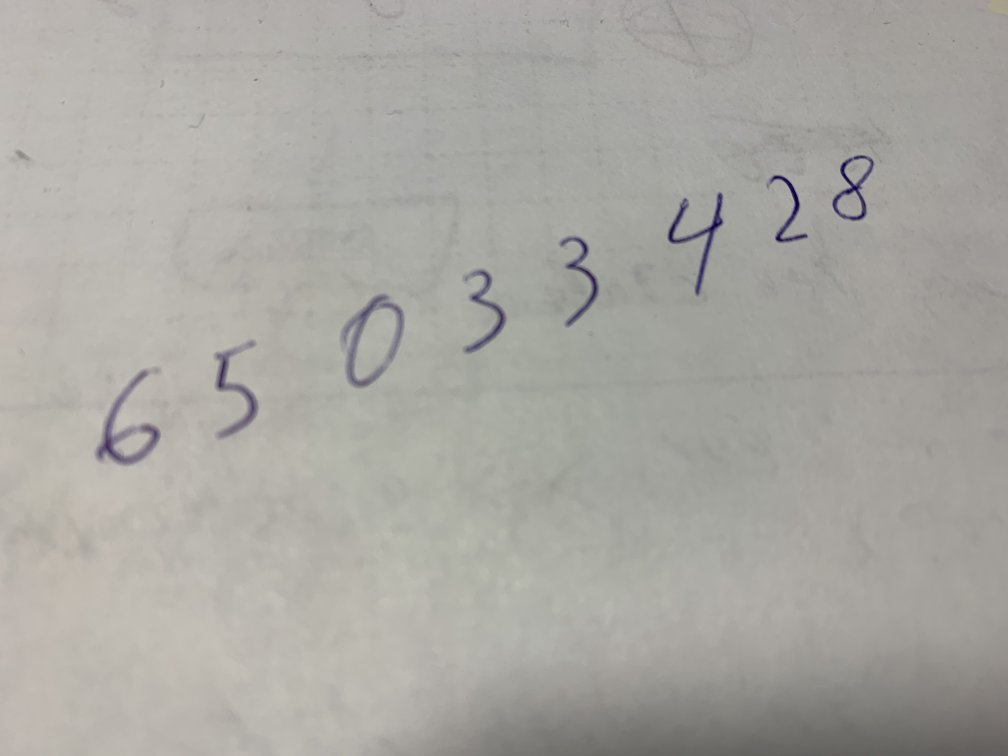 6 5 0 3 3 4 2 8